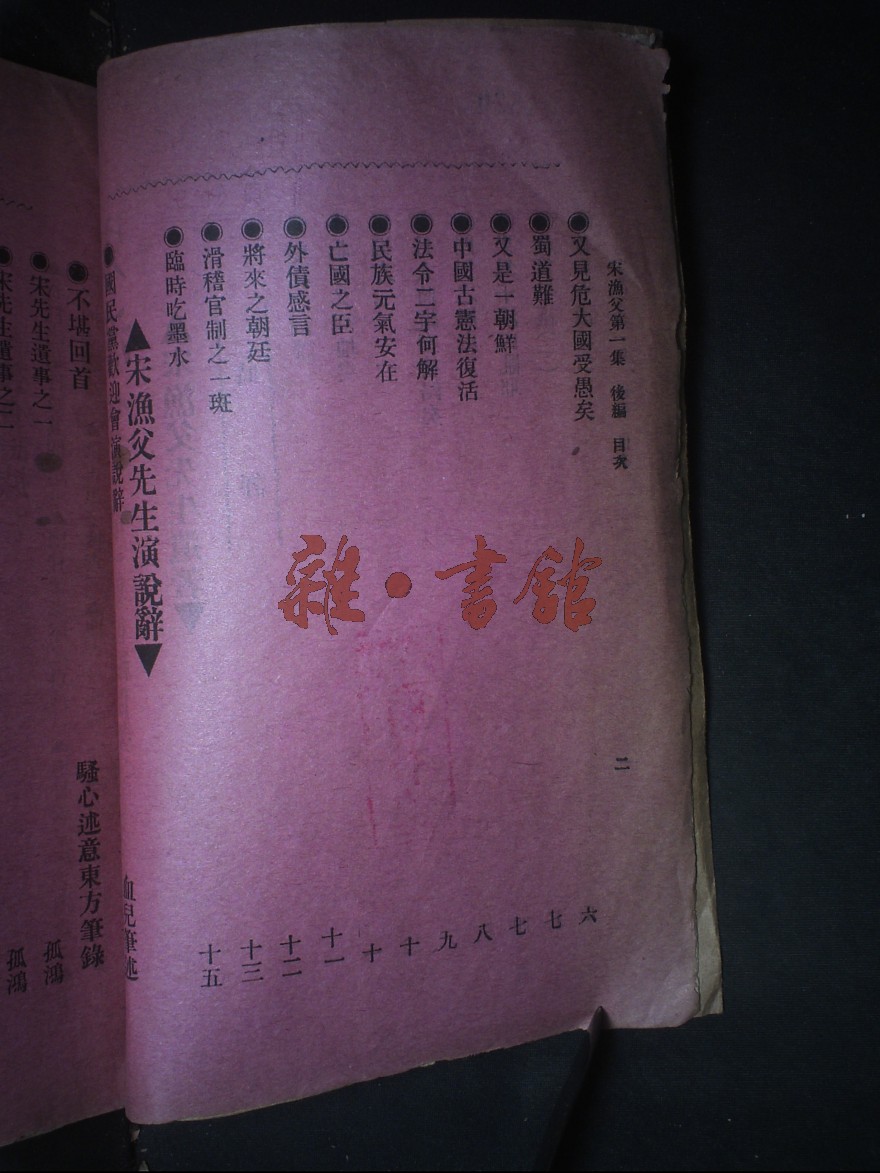 宋漁父第一集 後編 目次 二
◉又見危大國受愚矣 六
◉蜀道難 七
◉又是一朝鮮 七
◉中國古憲法復活 八
◉法令二字何解 九
◉民族元氣安在 十
◉亡國之臣 十
◉外債感言 十一
◉將來之朝廷 十二
◉滑稽官制之一斑 十三
◉臨時吃墨水 十五
▲宋漁父先生演說辭▼
◉國民黨歡迎會演說辭 血兒筆述
◉不堪回首 騷心述意東方筆錄
◉宋先生遺事之一 孤鴻
◉宋先生遺事之二 孤鴻
雜·書館